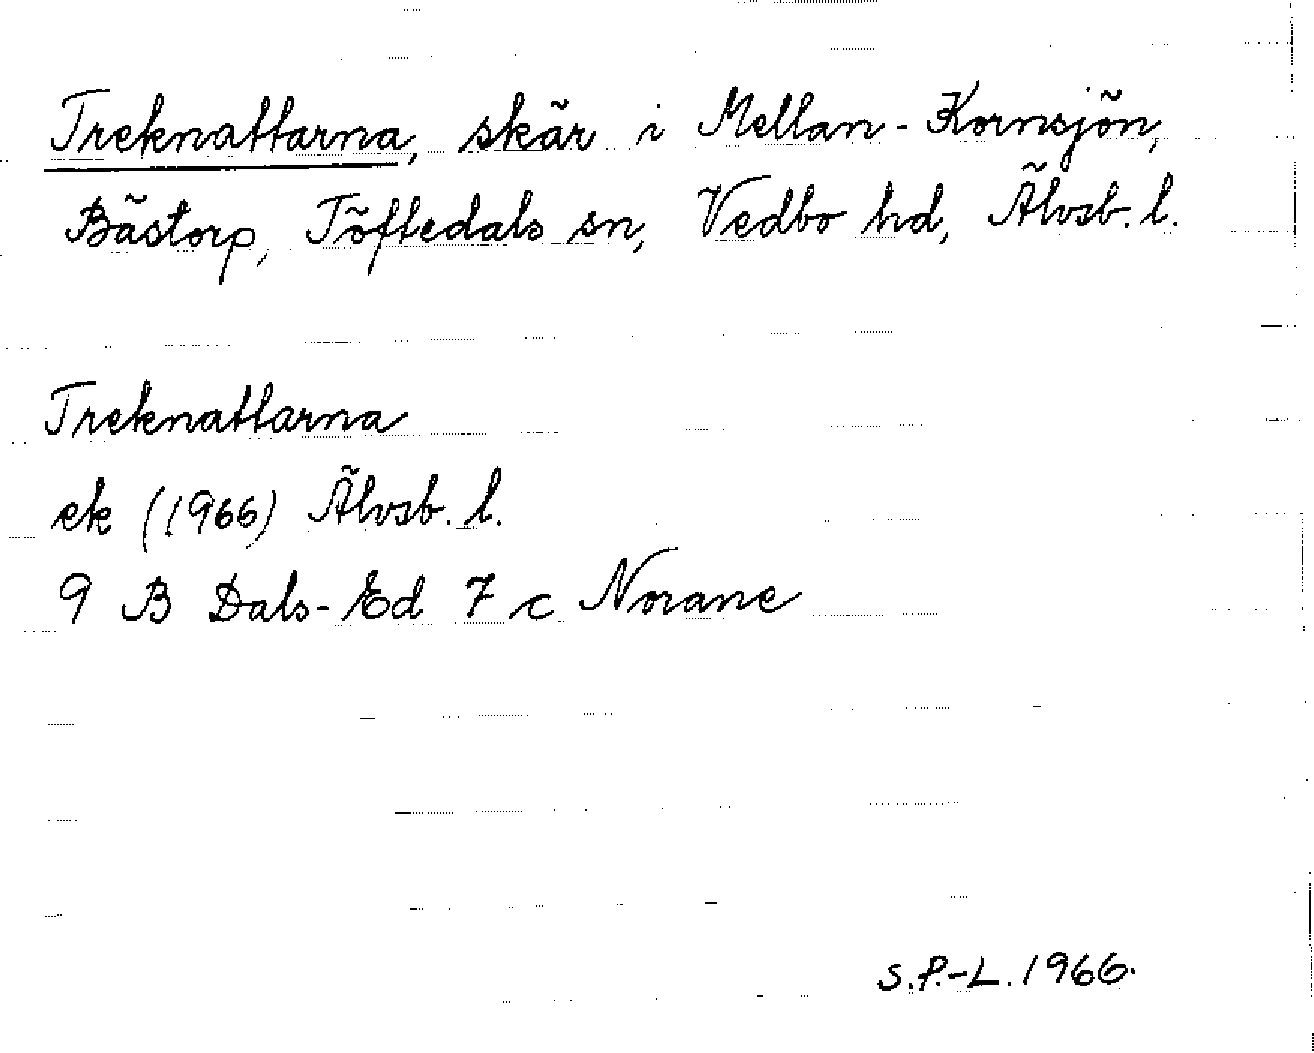 Treknattarna, skär i Mellan-Kornsjön,
Bästorp, Töftedals sn, Vedbo hd, Älvsb. l.
Treknattarna
ek (1966) Älvsb. l.
9 B Dals-Ed 7 c Norane
S.P.-L. 1966.